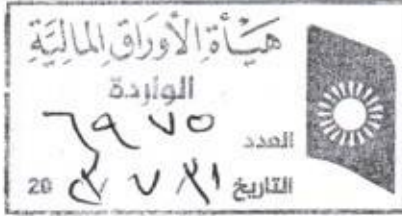 هَيْأَةُ الأَوْرَاقِ المَالِيَّةِ
الواردة
العدد ٦٩٧٥
التاريخ ٣١ / ٧ / 20